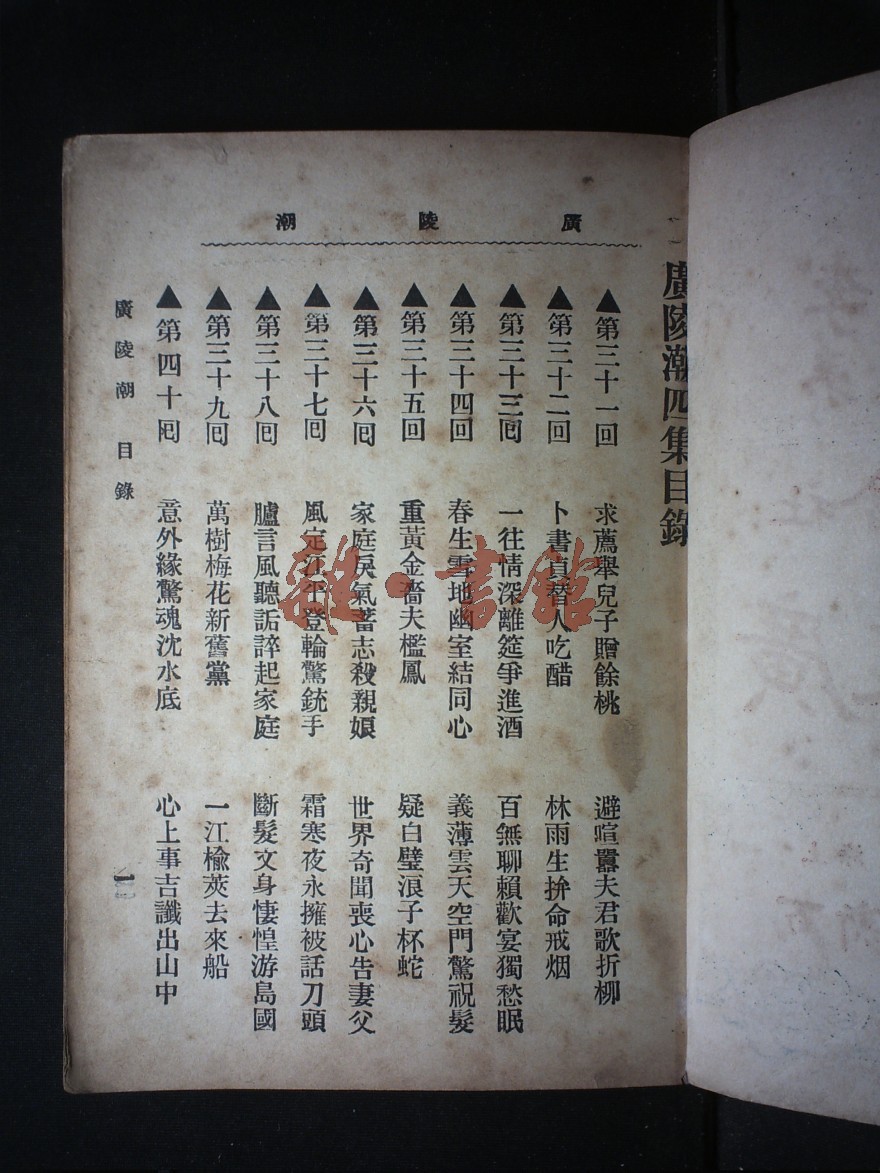 廣陵潮四集目錄
廣陵潮
▲第三十一回 求薦舉兒子贈餘桃 避喧囂夫君歌折柳
▲第三十二回 卜書貞替人吃醋 林雨生拚命戒烟
▲第三十三回 一往情深離筵爭進酒 百無聊賴歡宴獨愁眠
▲第三十四回 春生雪地幽室結同心 義薄雲天空門驚祝髮
▲第三十五回 重黃金嗇夫檻鳳 疑白璧浪子杯蛇
▲第三十六回 家庭戾氣蓄志殺親娘 世界奇聞喪心告妻父
▲第三十七回 風定江平登輪驚銃手 霜寒夜永擁被話刀頭
▲第三十八回 臚言風聽詬誶起家庭 斷髮文身悽惶游島國
▲第三十九回 萬樹梅花新舊黨 一江楡莢去來船
▲第四十回 意外緣驚魂沈水底 心上事吉讖出山中
廣陵潮 目錄
一
雜·書館